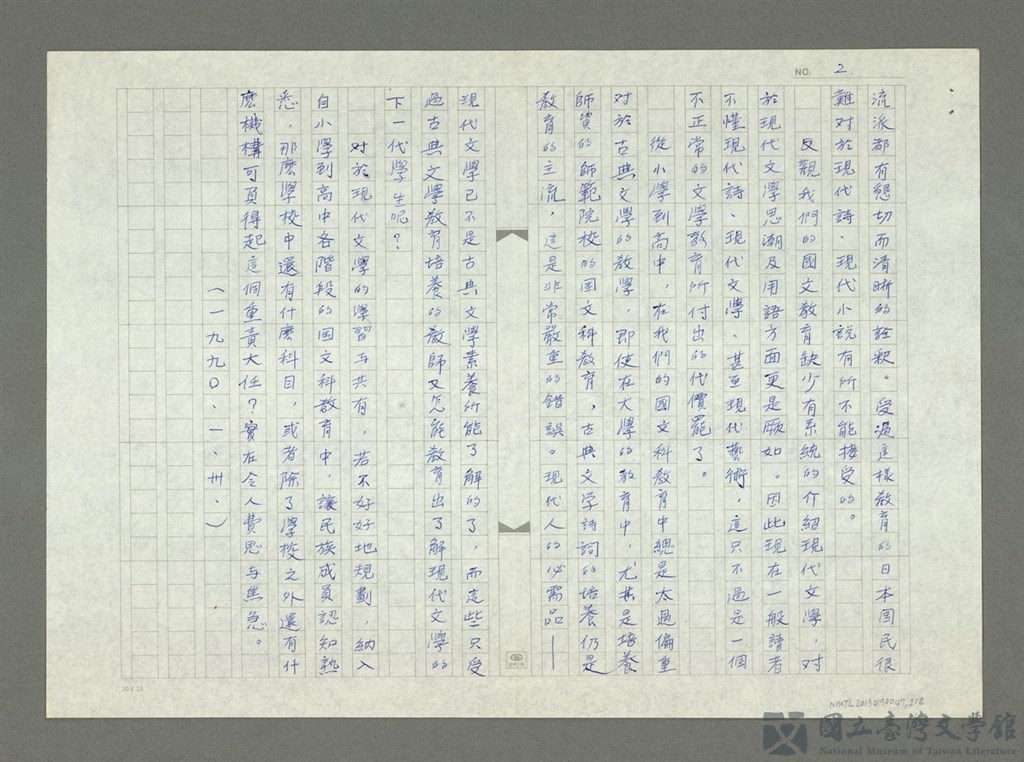 NO. 2
流派都有懇切而清晰的詮釈。受過這樣教育的日本国民很
難对於現代詩、現代小說有所不能接受的。
反觀我們的國文教育缺少有系統的介紹現代文學，对
於現代文學思潮及用語方面更是厥如。因此現在一般讀者
不懂現代詩、現代文學、甚至現代藝術，這只不過是一個
不正常的文學教育所付出的代價罷了。
從小學到高中，在我們的國文科教育中總是太過偏重
对於古典文學的教學，即使在大學的教育中，尤其是培養
師資的師範院校的国文科教育，古典文学詩詞的培養仍是
教育的主流，這是非常嚴重的錯誤。現代人的必需品——
現代文學已不是古典文學素養所能了解的了，而這些只受
過古典文學教育培養的教師又怎能教育出了解現代文學的
下一代學生呢？
对於現代文學的學習与共有，若不好好地規劃，納入
自小學到高中各階段的国文科教育中，讓民族成員認知熟
悉，那麽學校中還有什麽科目，或者除了學校之外還有什
麽機構可負得起這個重責大任？實在令人費思与焦急。
（一九九〇、一、卅、）
20×25
NMTL20130170047, 2/2
國立臺灣文學館
National Museum of Taiwan Literature